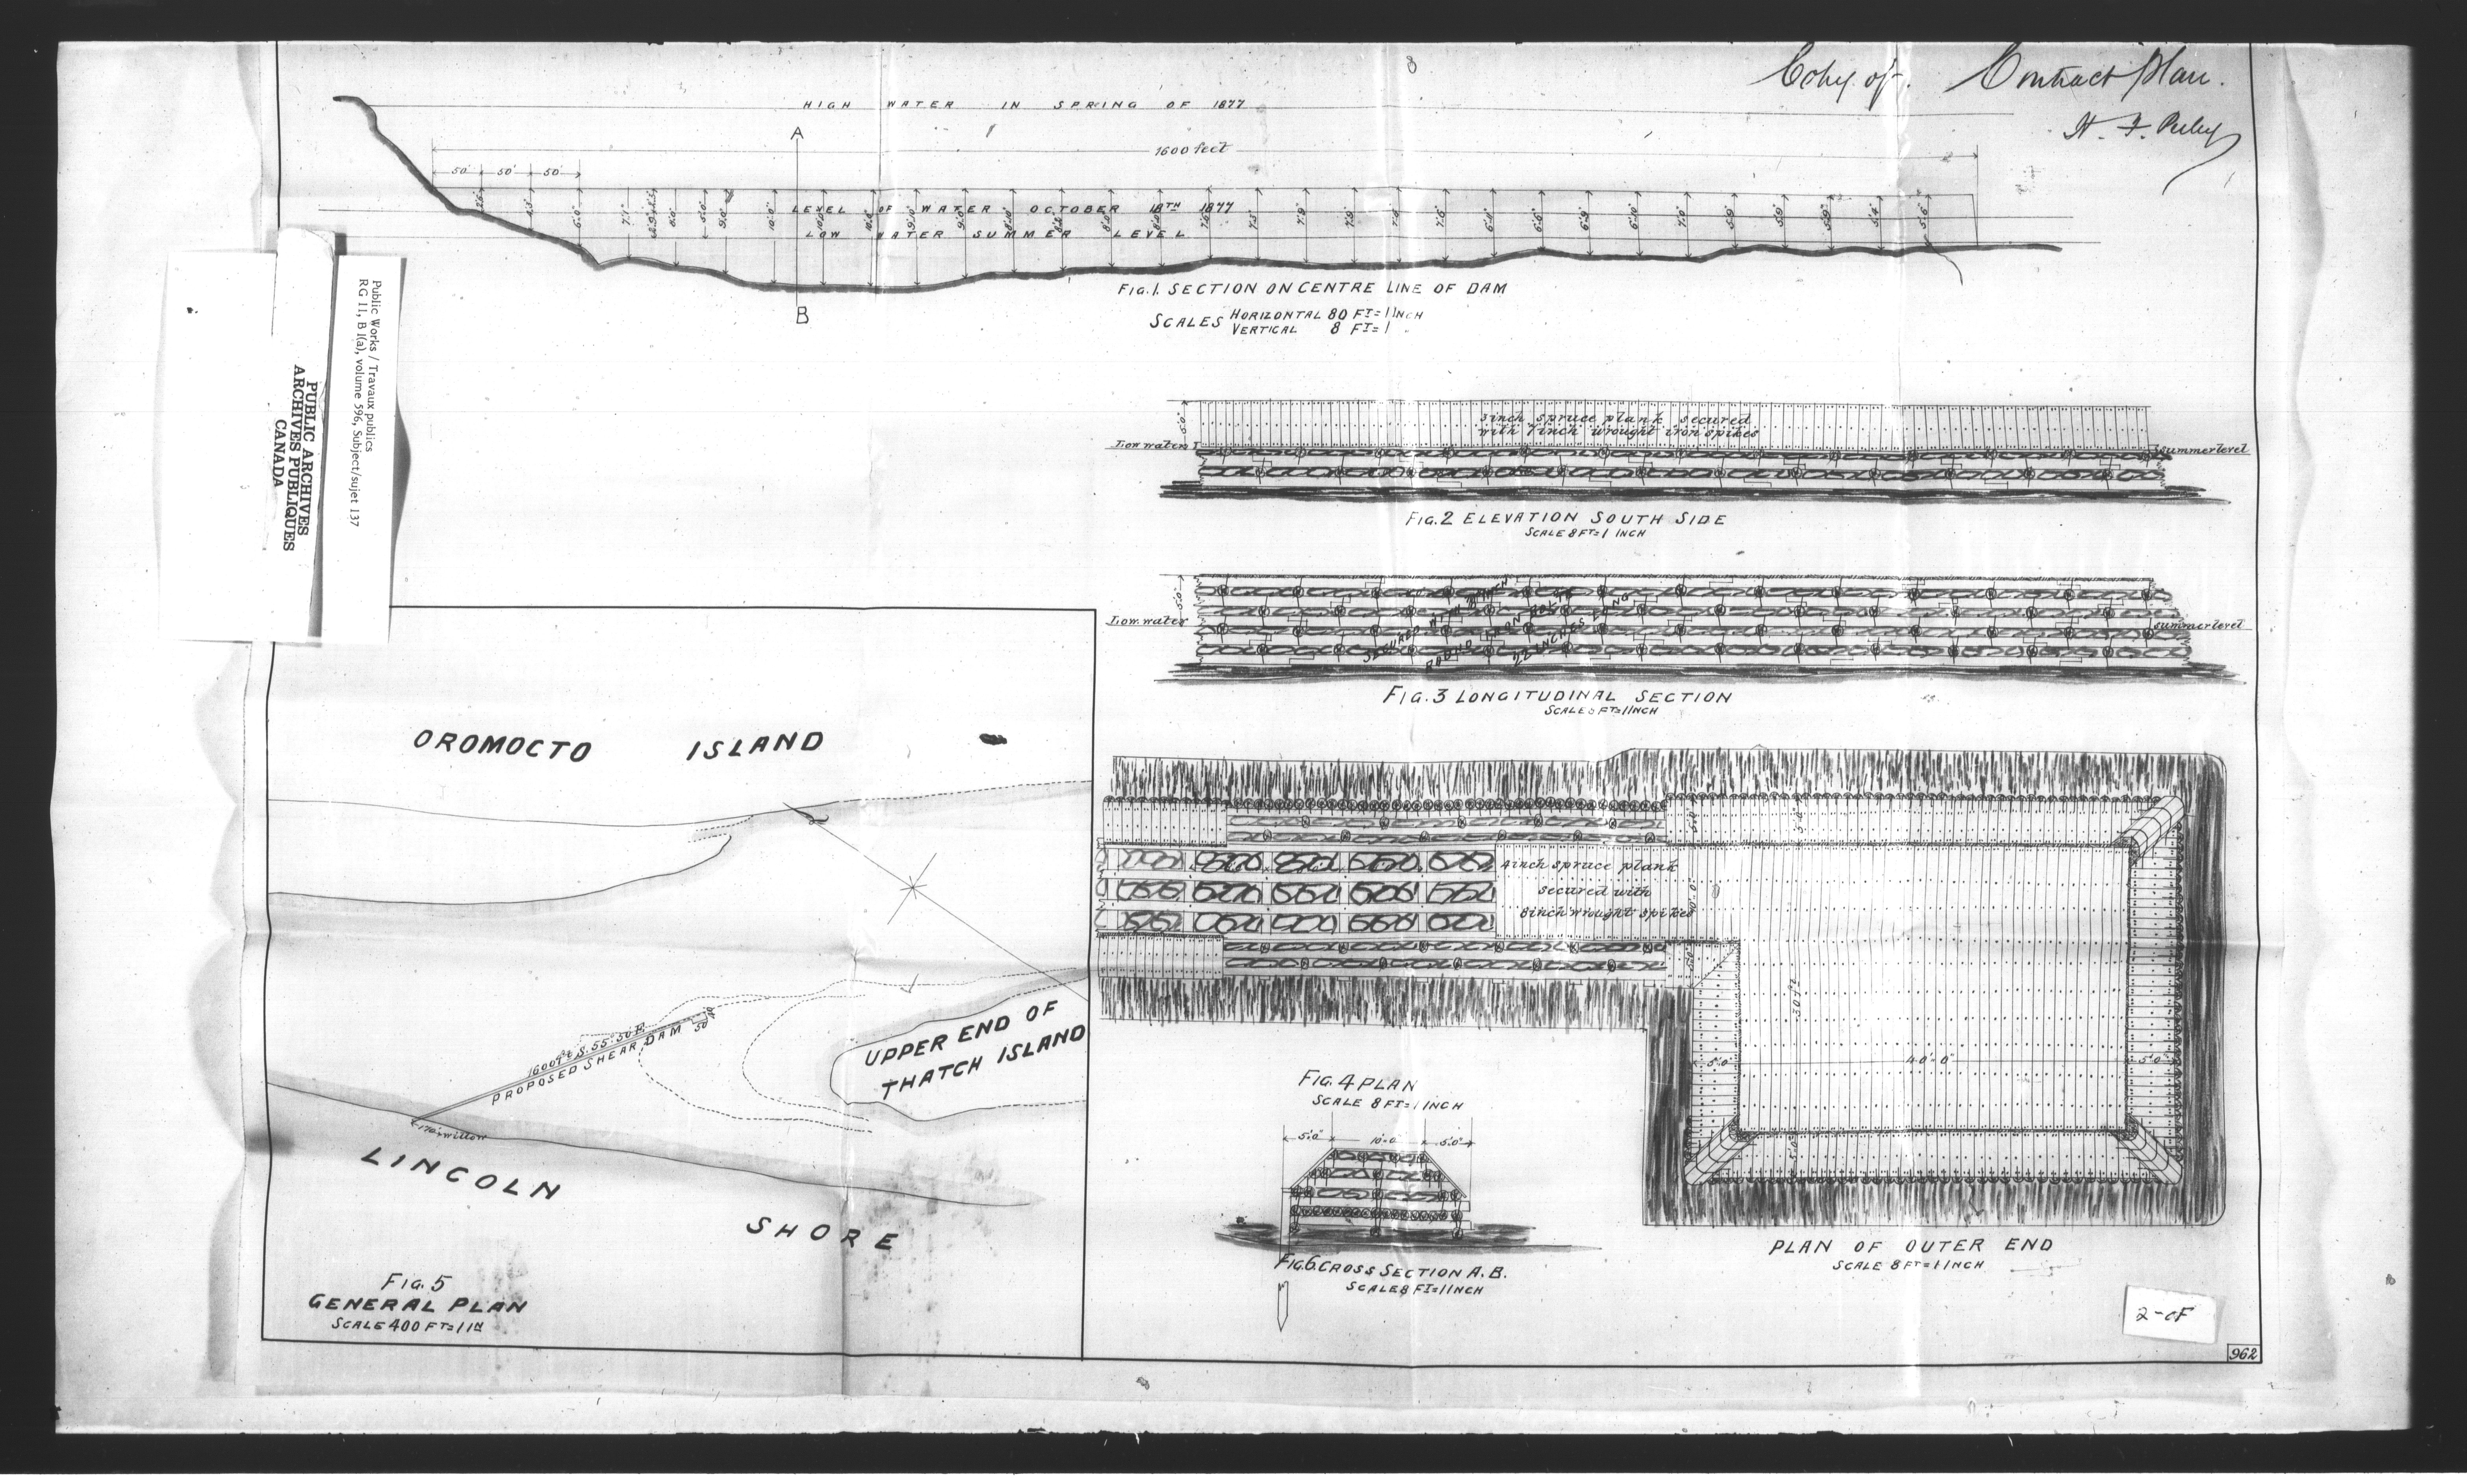 Copy of Contract plan.
HIGH WATER IN SPRING OF 1877
A
1600 feet
50' 50' 50'
LEVEL OF WATER OCTOBER 18TH 1877
LOW WATER SUMMER LEVEL
B
FIG. 1. SECTION ON CENTRE LINE OF DAM
SCALES HORIZONTAL 80 FT = 1 INCH
VERTICAL 8 FT = 1 "
Public Works / Travaux publics
RG 11, B 1(a), volume 596, Subject/sujet 137
PUBLIC ARCHIVES
ARCHIVES PUBLIQUES
CANADA
3 inch spruce plank secured
with 7 inch wrought iron spikes
Low water
summer level
FIG. 2 ELEVATION SOUTH SIDE
SCALE 8 FT = 1 INCH
5'.0"
SECURED WITH INCH
ROUND IRON BOLTS
22 INCHES LONG
Low water
summer level
FIG. 3 LONGITUDINAL SECTION
SCALE 8 FT = 1 INCH
OROMOCTO ISLAND
1600 ft S. 55° 50' E
PROPOSED SHEAR DAM
50
40
UPPER END OF
THATCH ISLAND
willow
LINCOLN
SHORE
FIG. 5
GENERAL PLAN
SCALE 400 FT = 1 IN
4 inch spruce plank
secured with
8 inch wrought spikes
5'.0"
5'.0"
10'.0"
5'.0"
5'.0"
40'.0"
5'.0"
5'.0"
FIG. 4 PLAN
SCALE 8 FT = 1 INCH
5'.0" 10'.0 5'.0"
FIG. 6. CROSS SECTION A. B.
SCALE 8 FT = 1 INCH
PLAN OF OUTER END
SCALE 8 FT = 1 INCH
2-OF
962